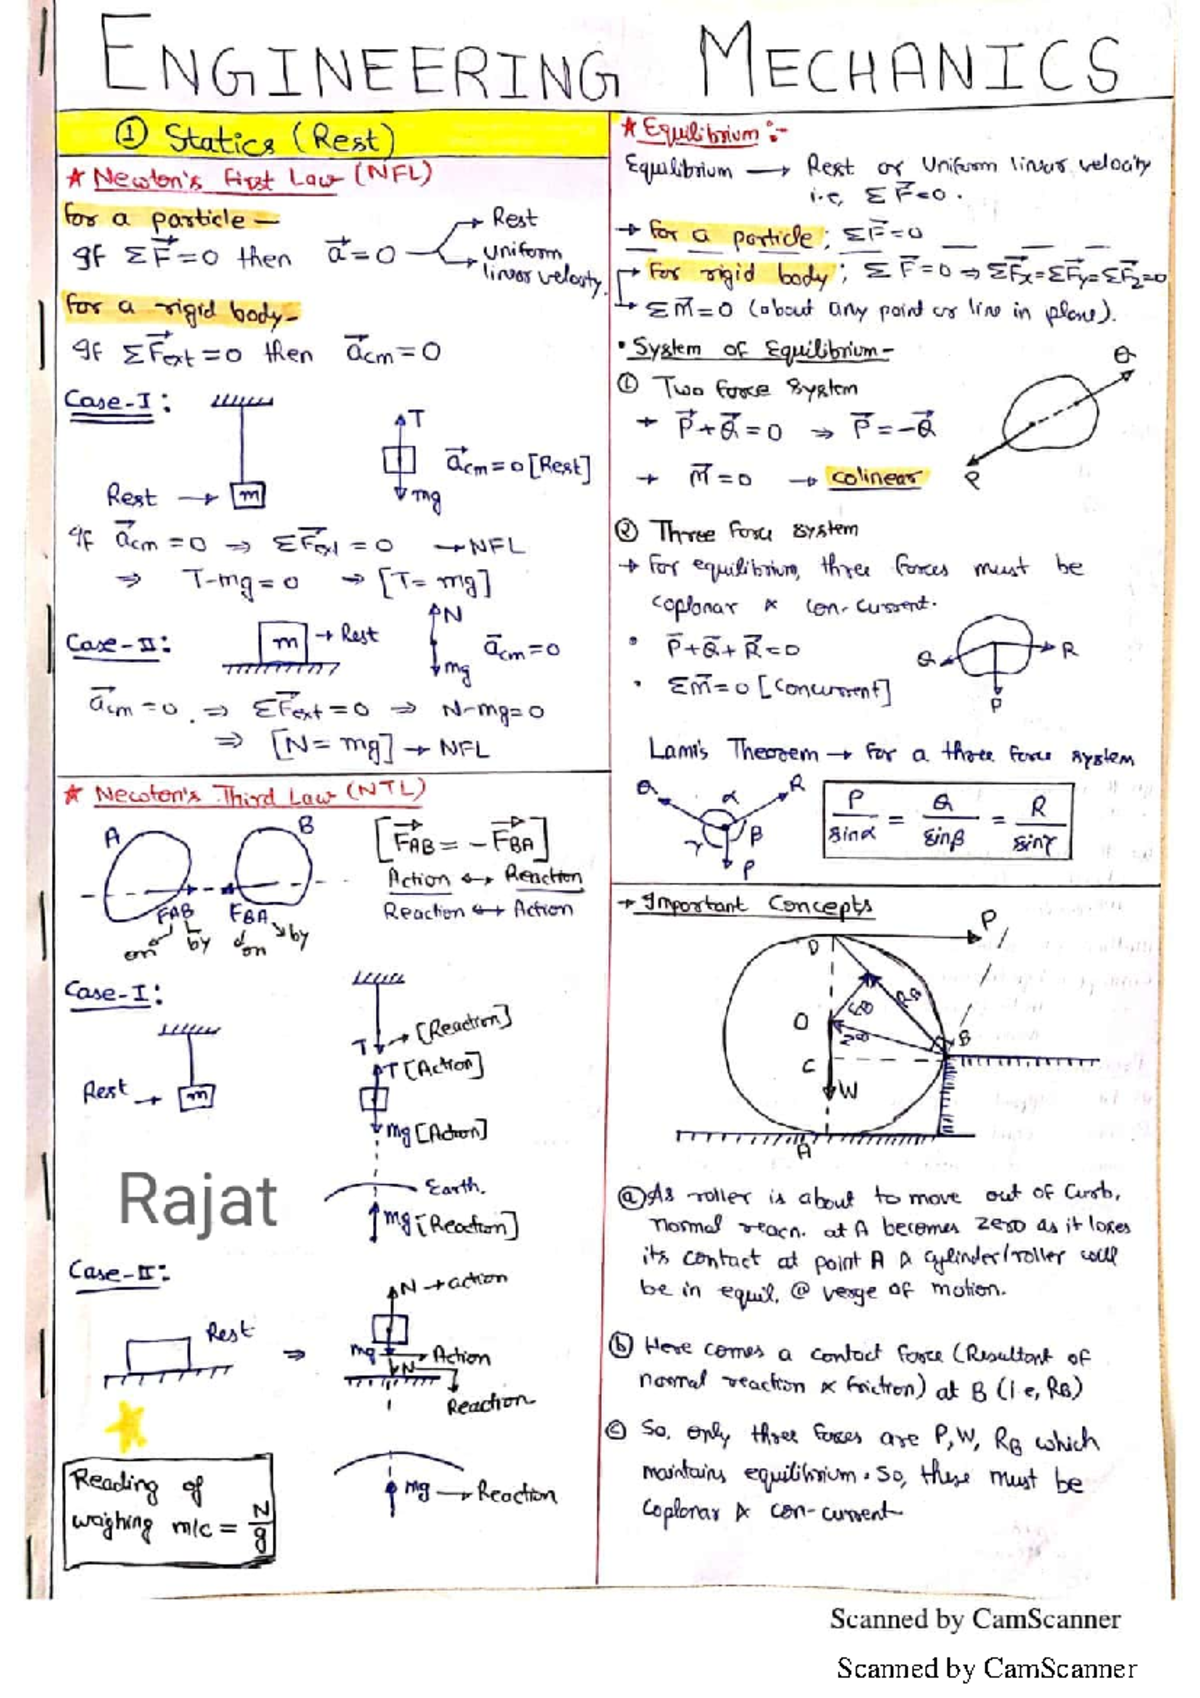 ENGINEERING MECHANICS
① Statics (Rest)
★ Newton's First Law (NFL)
for a particle —
If ΣF⃗ = 0 then a⃗ = 0
Rest
uniform
linear velocity.
for a rigid body-
If ΣF⃗ext = 0 then a⃗cm = 0
Case-I :
Rest → m
T
mg
a⃗cm = 0 [Rest]
If a⃗cm = 0 ⇒ ΣF⃗ext = 0 → NFL
⇒ T-mg = 0 → [T = mg]
Case-II :
m → Rest
N
mg
a⃗cm = 0
a⃗cm = 0 . ⇒ ΣF⃗ext = 0 ⇒ N-mg = 0
⇒ [N = mg] → NFL
★ Newton's Third Law (NTL)
A
B
FAB
FBA
on by on by
[F⃗AB = - F⃗BA]
Action ↔ Reaction
Reaction ↔ Action
Case-I :
Rest → m
T → [Reaction]
T [Action]
mg [Action]
Earth.
mg [Reaction]
Rajat
Case-II :
Rest ⇒
N → action
mg → Action
N
Reaction
mg → Reaction
Reading of
waighing m/c = N/g
★ Equilibrium :-
Equilibrium → Rest or Uniform linear velocity
i.e, ΣF⃗ = 0 .
→ for a particle ; ΣF⃗ = 0
→ for rigid body ; ΣF⃗ = 0 ⇒ ΣF⃗x = ΣF⃗y = ΣF⃗z = 0
→ ΣM⃗ = 0 (about any point or line in plane).
• System of Equilibrium -
① Two force system
→ P⃗ + Q⃗ = 0 ⇒ P⃗ = -Q⃗
→ M⃗ = 0 → colinear
Q
P
② Three Force system
→ for equilibrium, three forces must be
coplanar & con-current.
• P⃗ + Q⃗ + R⃗ = 0
• ΣM⃗ = 0 [Concurrent]
Q
R
P
Lami's Theorem → for a three force system
Q α R
γ β
P
P/sinα = Q/sinβ = R/sinγ
→ Important Concepts
D
P
O
RB
B
C
W
A
ⓐ As roller is about to move out of Curb,
normal reacn. at A becomes zero as it loses
its contact at point A & cylinder/roller will
be in equil. @ verge of motion.
ⓑ Here comes a contact force (Resultant of
normal reaction & friction) at B (i.e, RB)
ⓒ So, only three forces are P, W, RB which
maintains equilibrium. So, these must be
coplanar & con-current
Scanned by CamScanner
Scanned by CamScanner